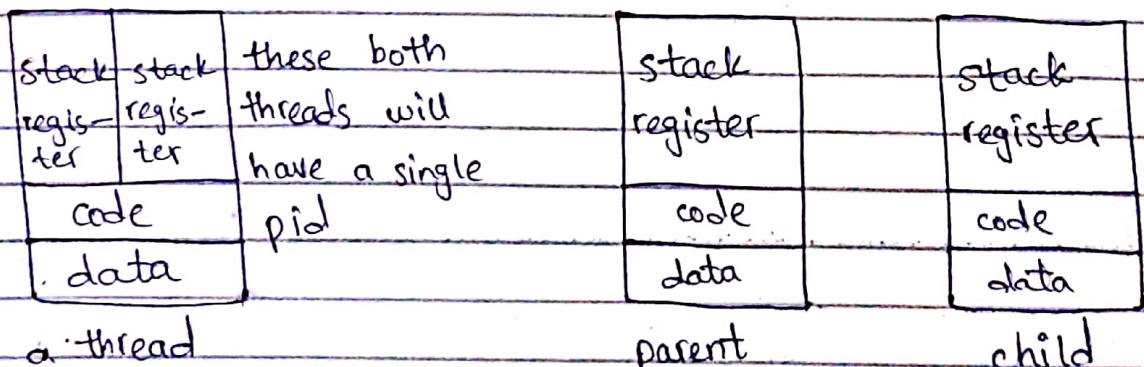 stack
regis-
ter
stack
regis-
ter
code
data
a thread
these both
threads will
have a single
pid
stack
register
code
data
parent
stack
register
code
data
child